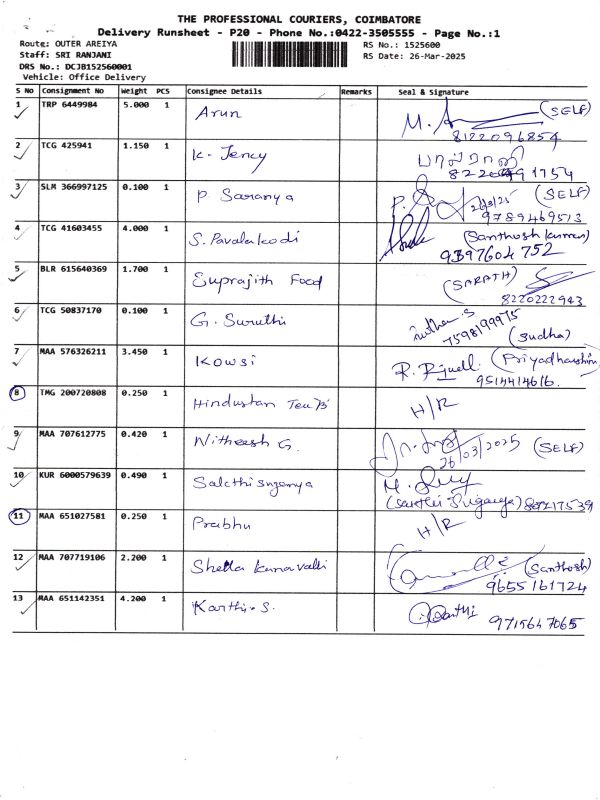 THE PROFESSIONAL COURIERS, COIMBATORE
Delivery Runsheet - P20 - Phone No.:0422-3505555 - Page No.:1
Route: OUTER AREIYA
RS No.: 1525600
Staff: SRI RANJANI
RS Date: 26-Mar-2025
DRS No.: DCJB152560001
Vehicle: Office Delivery
S No Consignment No Weight PCS Consignee Details Remarks Seal & Signature
1 TRP 6449984 5.000 1 Arun M. (SELF)
8122096854
2 TCG 425941 1.150 1 K. Jency
1754
3 SLM 366997125 0.100 1 P Saranya P. 26/3/25 (SELF)
9789469513
4 TCG 41603455 4.000 1 S. Pavalakodi (Santhosh kumar)
9397604 752
5 BLR 615640369 1.700 1 Suprajith Food (SARATH)
8220222943
6 TCG 50837170 0.100 1 G. Suruthi
7598199975 (Sudha)
7 MAA 576326211 3.450 1 Kowsi R. (Priyadharshini
9514414616.
8 TMG 200720808 0.250 1 Hindustan H/R
9 MAA 707612775 0.420 1 Nitheesh G. 26/03/2025 (SELF)
10 KUR 6000579639 0.490 1 M.
11 MAA 651027581 0.250 1 Prabhu H/R
12 MAA 707719106 2.200 1 (Santhosh)
9655161724
13 MAA 651142351 4.200 1 Karthi. S. Karthi 9715647065